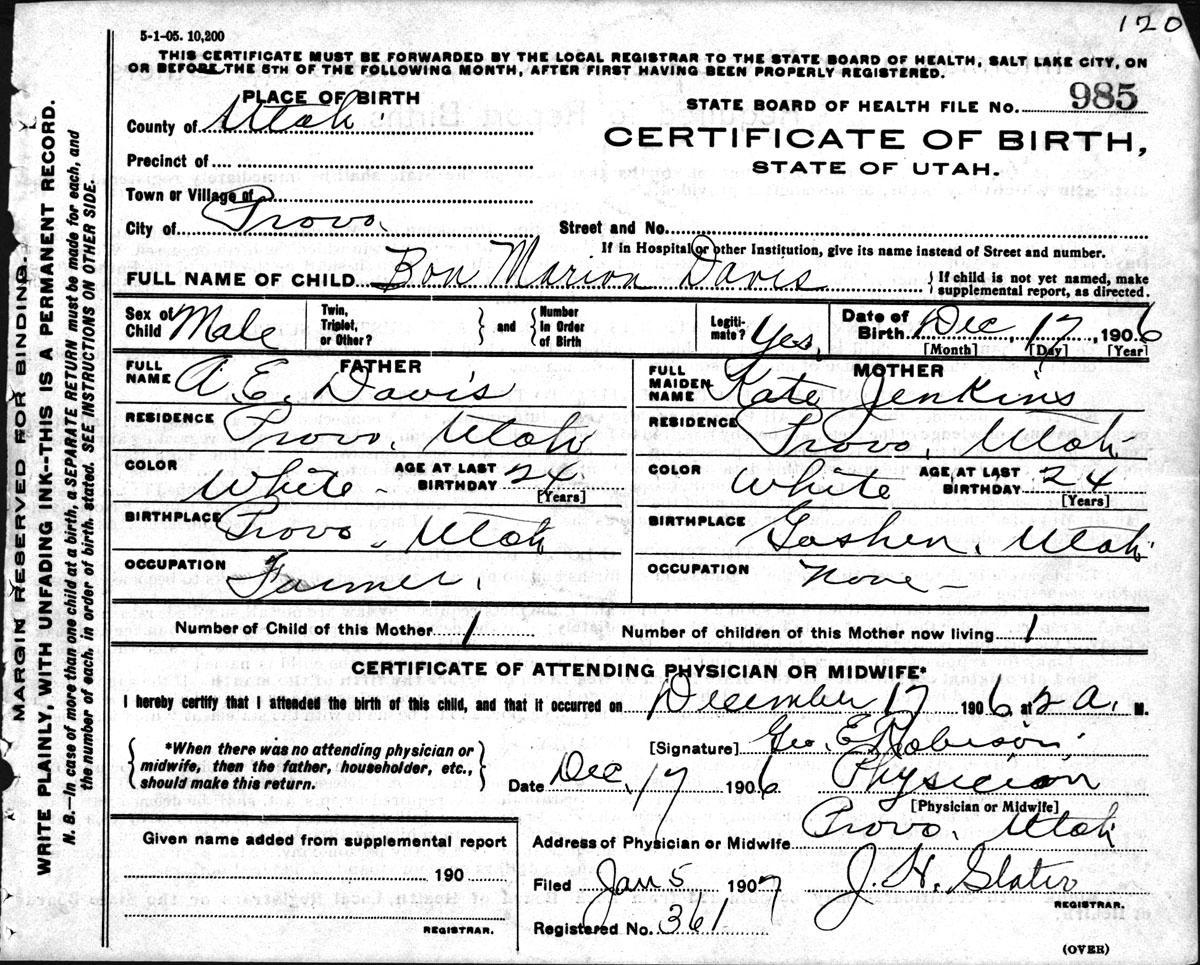 120
5-1-05. 10,200
THIS CERTIFICATE MUST BE FORWARDED BY THE LOCAL REGISTRAR TO THE STATE BOARD OF HEALTH, SALT LAKE CITY, ON
OR BEFORE THE 5TH OF THE FOLLOWING MONTH, AFTER FIRST HAVING BEEN PROPERLY REGISTERED.
MARGIN RESERVED FOR BINDING.
WRITE PLAINLY, WITH UNFADING INK--THIS IS A PERMANENT RECORD.
N. B.—In case of more than one child at a birth, a SEPARATE RETURN must be made for each, and
the number of each, in order of birth, stated. SEE INSTRUCTIONS ON OTHER SIDE.
PLACE OF BIRTH
County of Utah
Precinct of
Town or Village of
City of Provo.
STATE BOARD OF HEALTH FILE NO. 985
CERTIFICATE OF BIRTH,
STATE OF UTAH.
Street and No.
If in Hospital or other Institution, give its name instead of Street and number.
FULL NAME OF CHILD Bon Marion Davis } If child is not yet named, make
supplemental report, as directed.
Sex of Child Male
Twin, Triplet, or Other? } and { Number In Order of Birth
Legitimate? Yes.
Date of Birth Dec 17, 1906
[Month] [Day] [Year]
FATHER
FULL NAME A. E. Davis
RESIDENCE Provo, Utah
COLOR White AGE AT LAST BIRTHDAY 24 [Years]
BIRTHPLACE Provo, Utah
OCCUPATION Farmer.
MOTHER
FULL MAIDEN NAME Kate Jenkins
RESIDENCE Provo, Utah
COLOR White AGE AT LAST BIRTHDAY 24 [Years]
BIRTHPLACE Goshen, Utah
OCCUPATION None
Number of Child of this Mother 1 Number of children of this Mother now living 1
CERTIFICATE OF ATTENDING PHYSICIAN OR MIDWIFE*
I hereby certify that I attended the birth of this child, and that it occurred on December 17 1906 at 2 a. M.
{ *When there was no attending physician or
midwife, then the father, householder, etc.,
should make this return. }
[Signature] Geo. E. Robison
Date Dec, 17 1906 Physician
[Physician or Midwife]
Address of Physician or Midwife Provo, Utah
Given name added from supplemental report
190
REGISTRAR.
Filed Jan 5 1907 J. H. Slater
REGISTRAR.
Registered No. 361
(OVER)